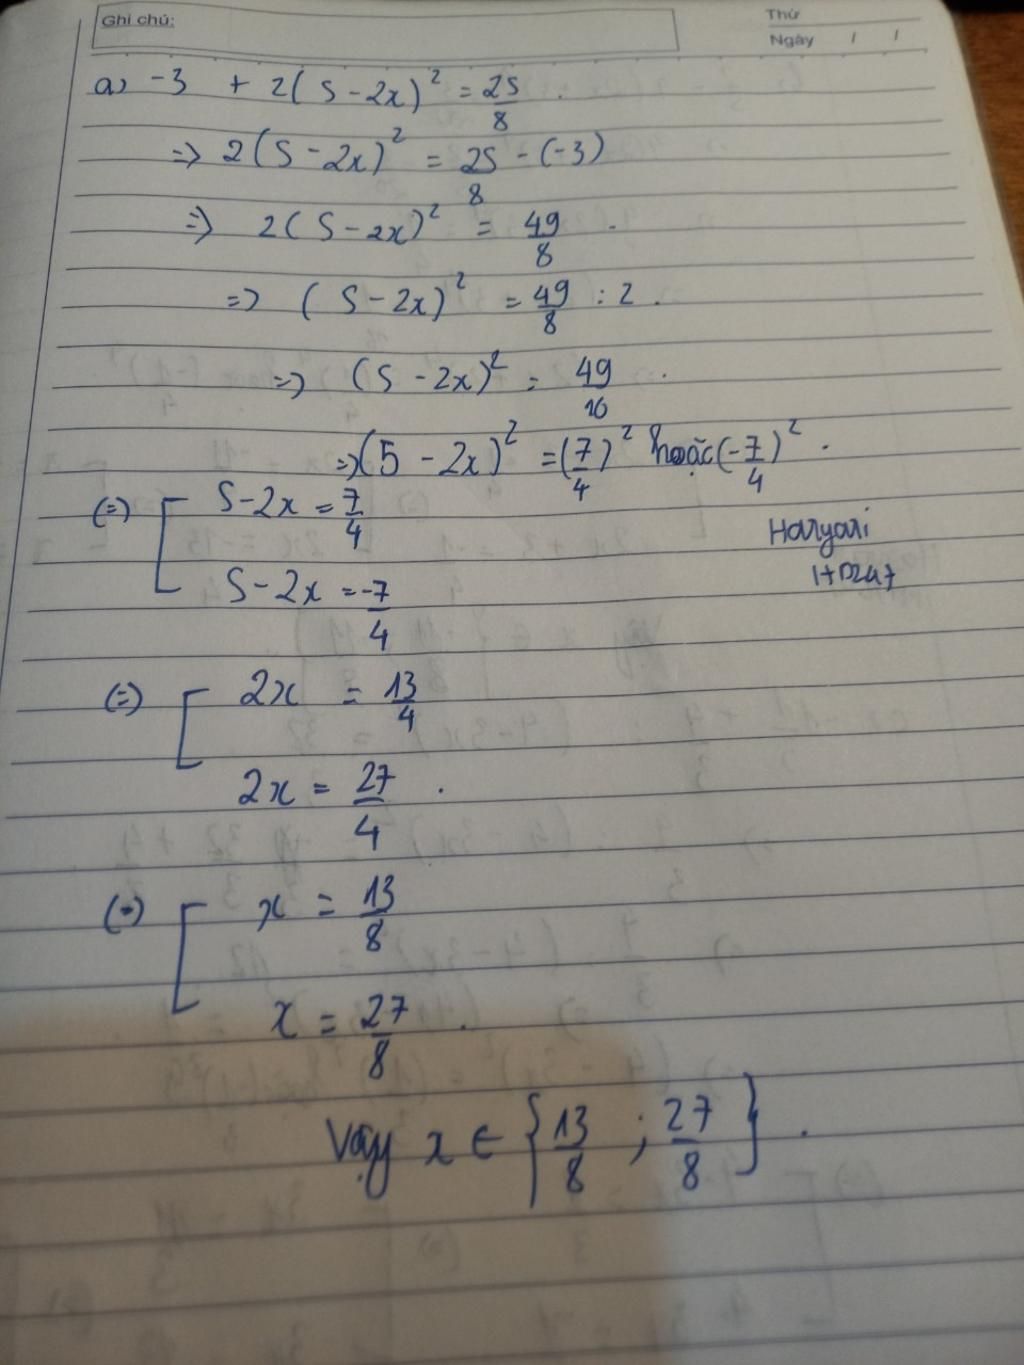 Ghi chú:
Thứ
Ngày / /
a) -3 + 2(5-2x)² = 25/8 .
=> 2(5-2x)² = 25/8 - (-3)
=> 2(5-2x)² = 49/8 .
=> (5-2x)² = 49/8 : 2 .
=> (5-2x)² = 49/16 .
=> (5-2x)² = (7/4)² hoặc (-7/4)² .
(=) [ 5-2x = 7/4
5-2x = -7/4
(=) [ 2x = 13/4
2x = 27/4 .
(=) [ x = 13/8
x = 27/8 .
Vậy x ∈ { 13/8 ; 27/8 } .